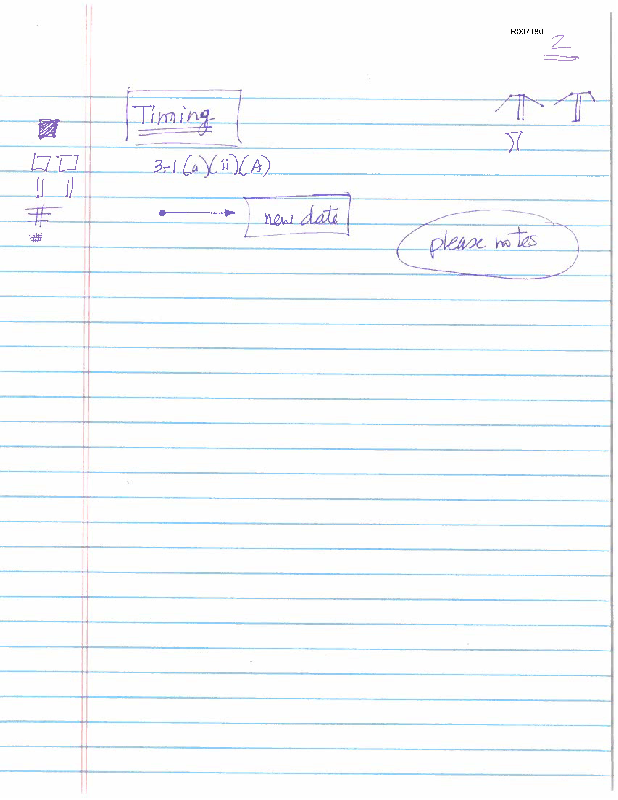 2
Timing
3-1(a)(ii)(A)
new date
please notes